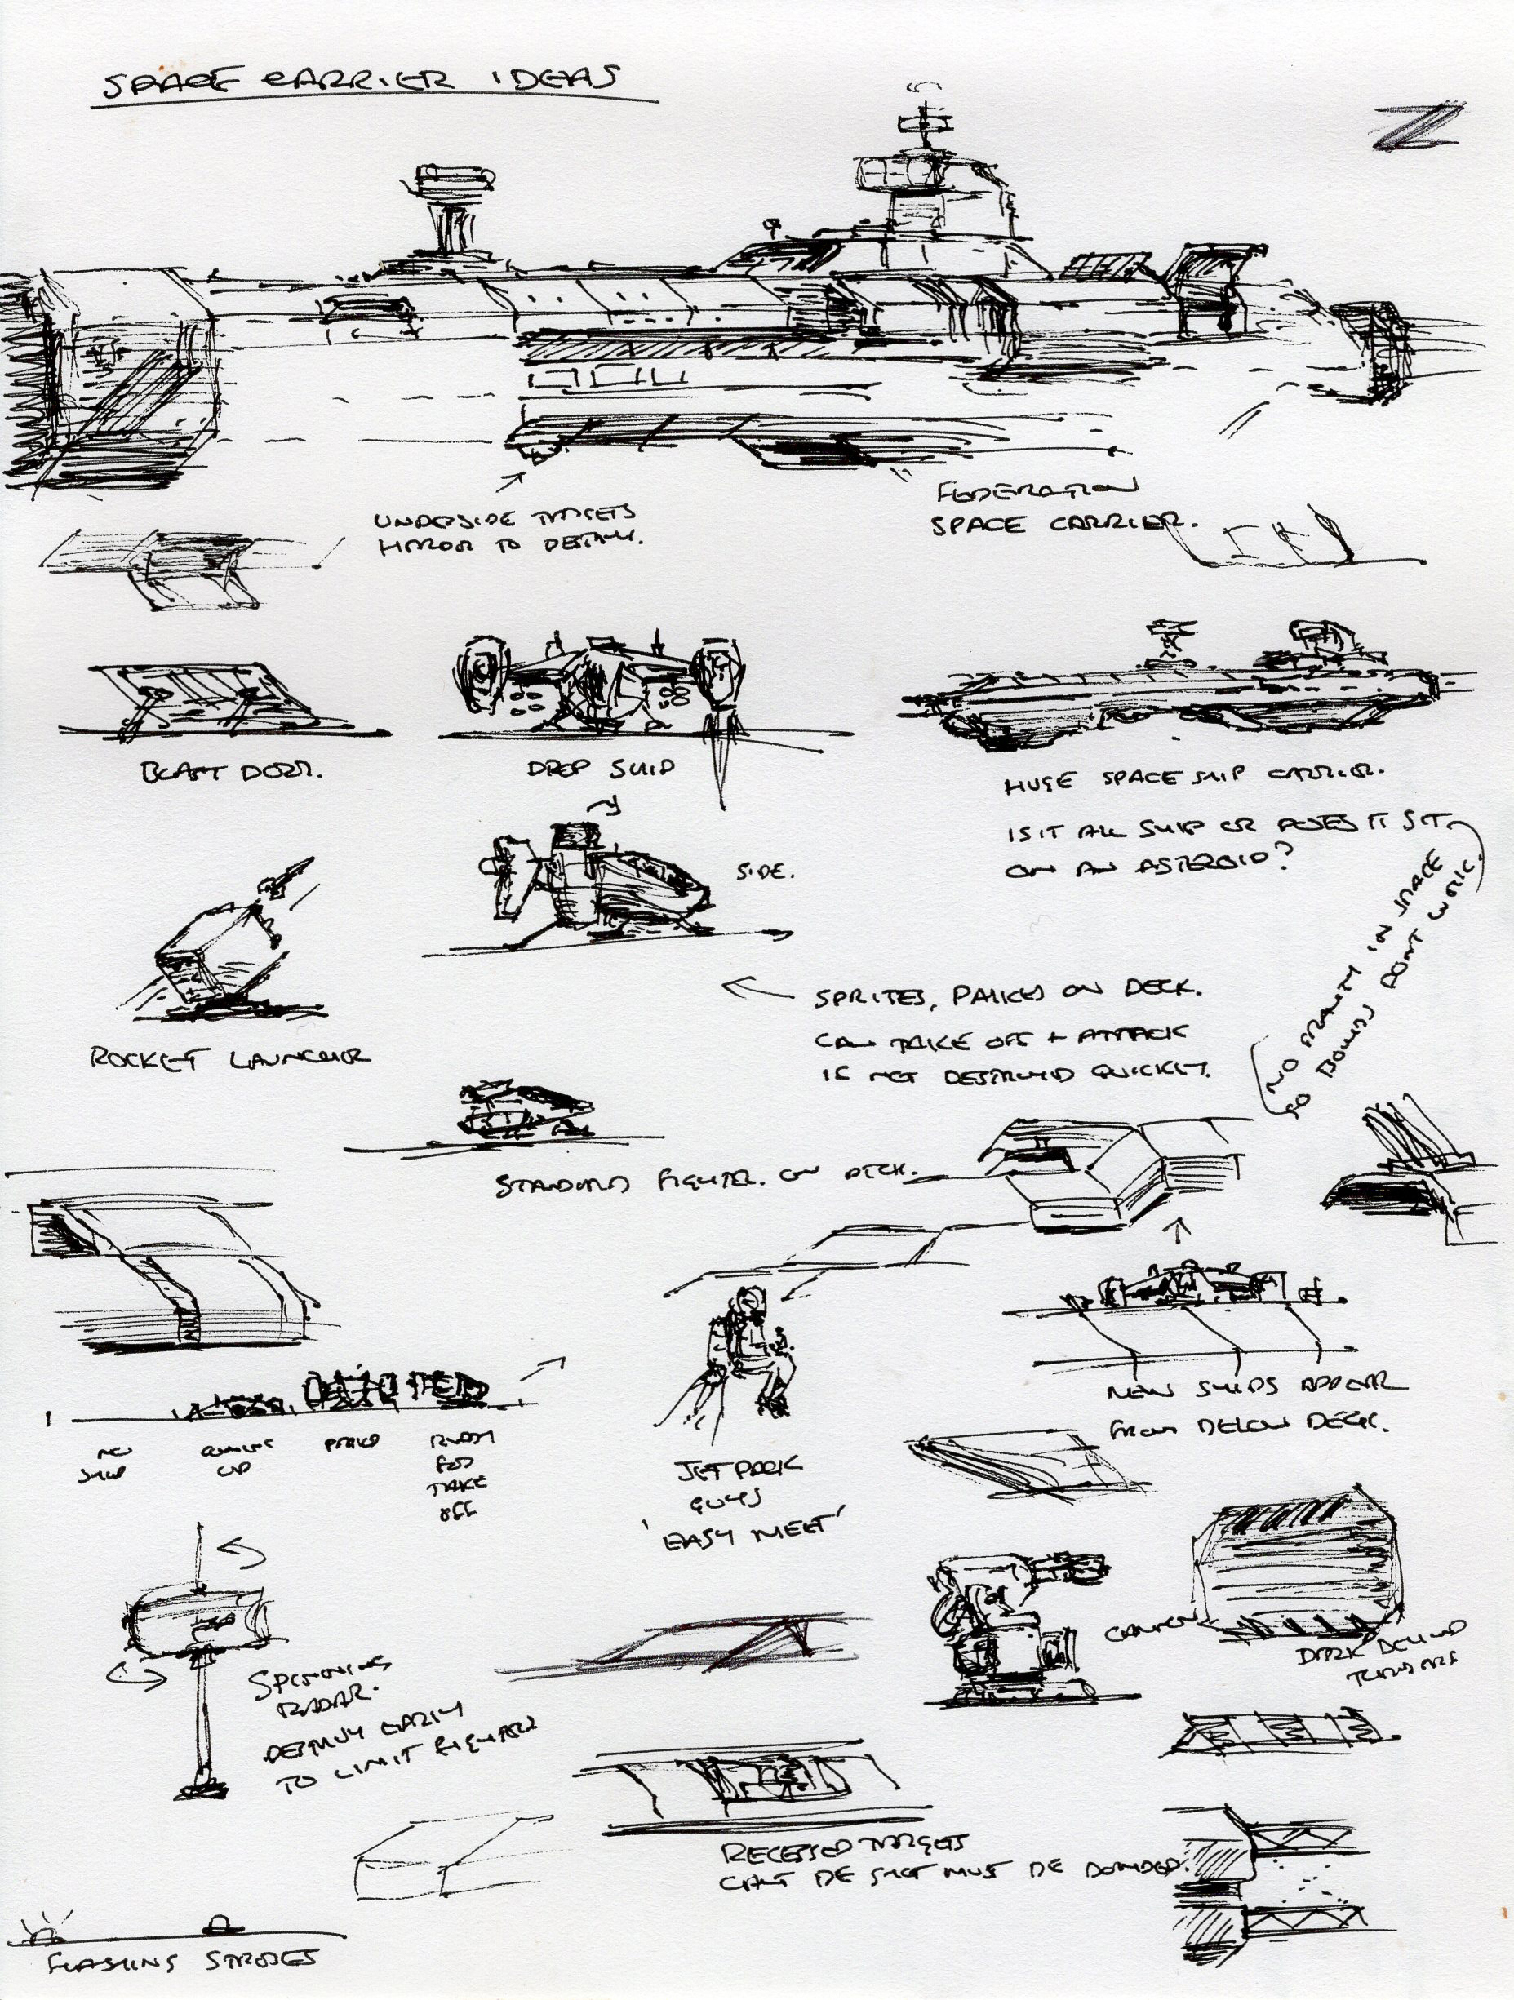 SPACE CARRIER IDEAS
Z
UNDERSIDE TARGETS
HARDER TO DESTROY.
FEDERATION
SPACE CARRIER.
BLAST DOOR.
DROP SHIP
HUGE SPACE SHIP CARRIER.
IS IT ALL SHIP OR DOES IT SIT
ON AN ASTEROID?
NO GRAVITY IN SPACE
SO BOMBS DONT WORK.
SIDE.
ROCKET LAUNCHER
SPRITES, PARKED ON DECK.
CAN TAKE OFF + ATTACK
IF NOT DESTROYED QUICKLY.
STANDARD FIGHTER. ON DECK.
NEW SHIPS APPEAR
FROM BELOW DECK.
NO
SHIP
COMING
UP
PARKED
READY
FOR
TAKE
OFF
JET PACK
GUYS
'EASY MEET'
SPINNING
RADAR.
DESTROY EARLY
TO LIMIT FIGHTERS
CANNON
DARK BEHIND
RECESSED TARGETS
CANT BE SHOT MUST BE BOMBED.
FLASHING STROBES